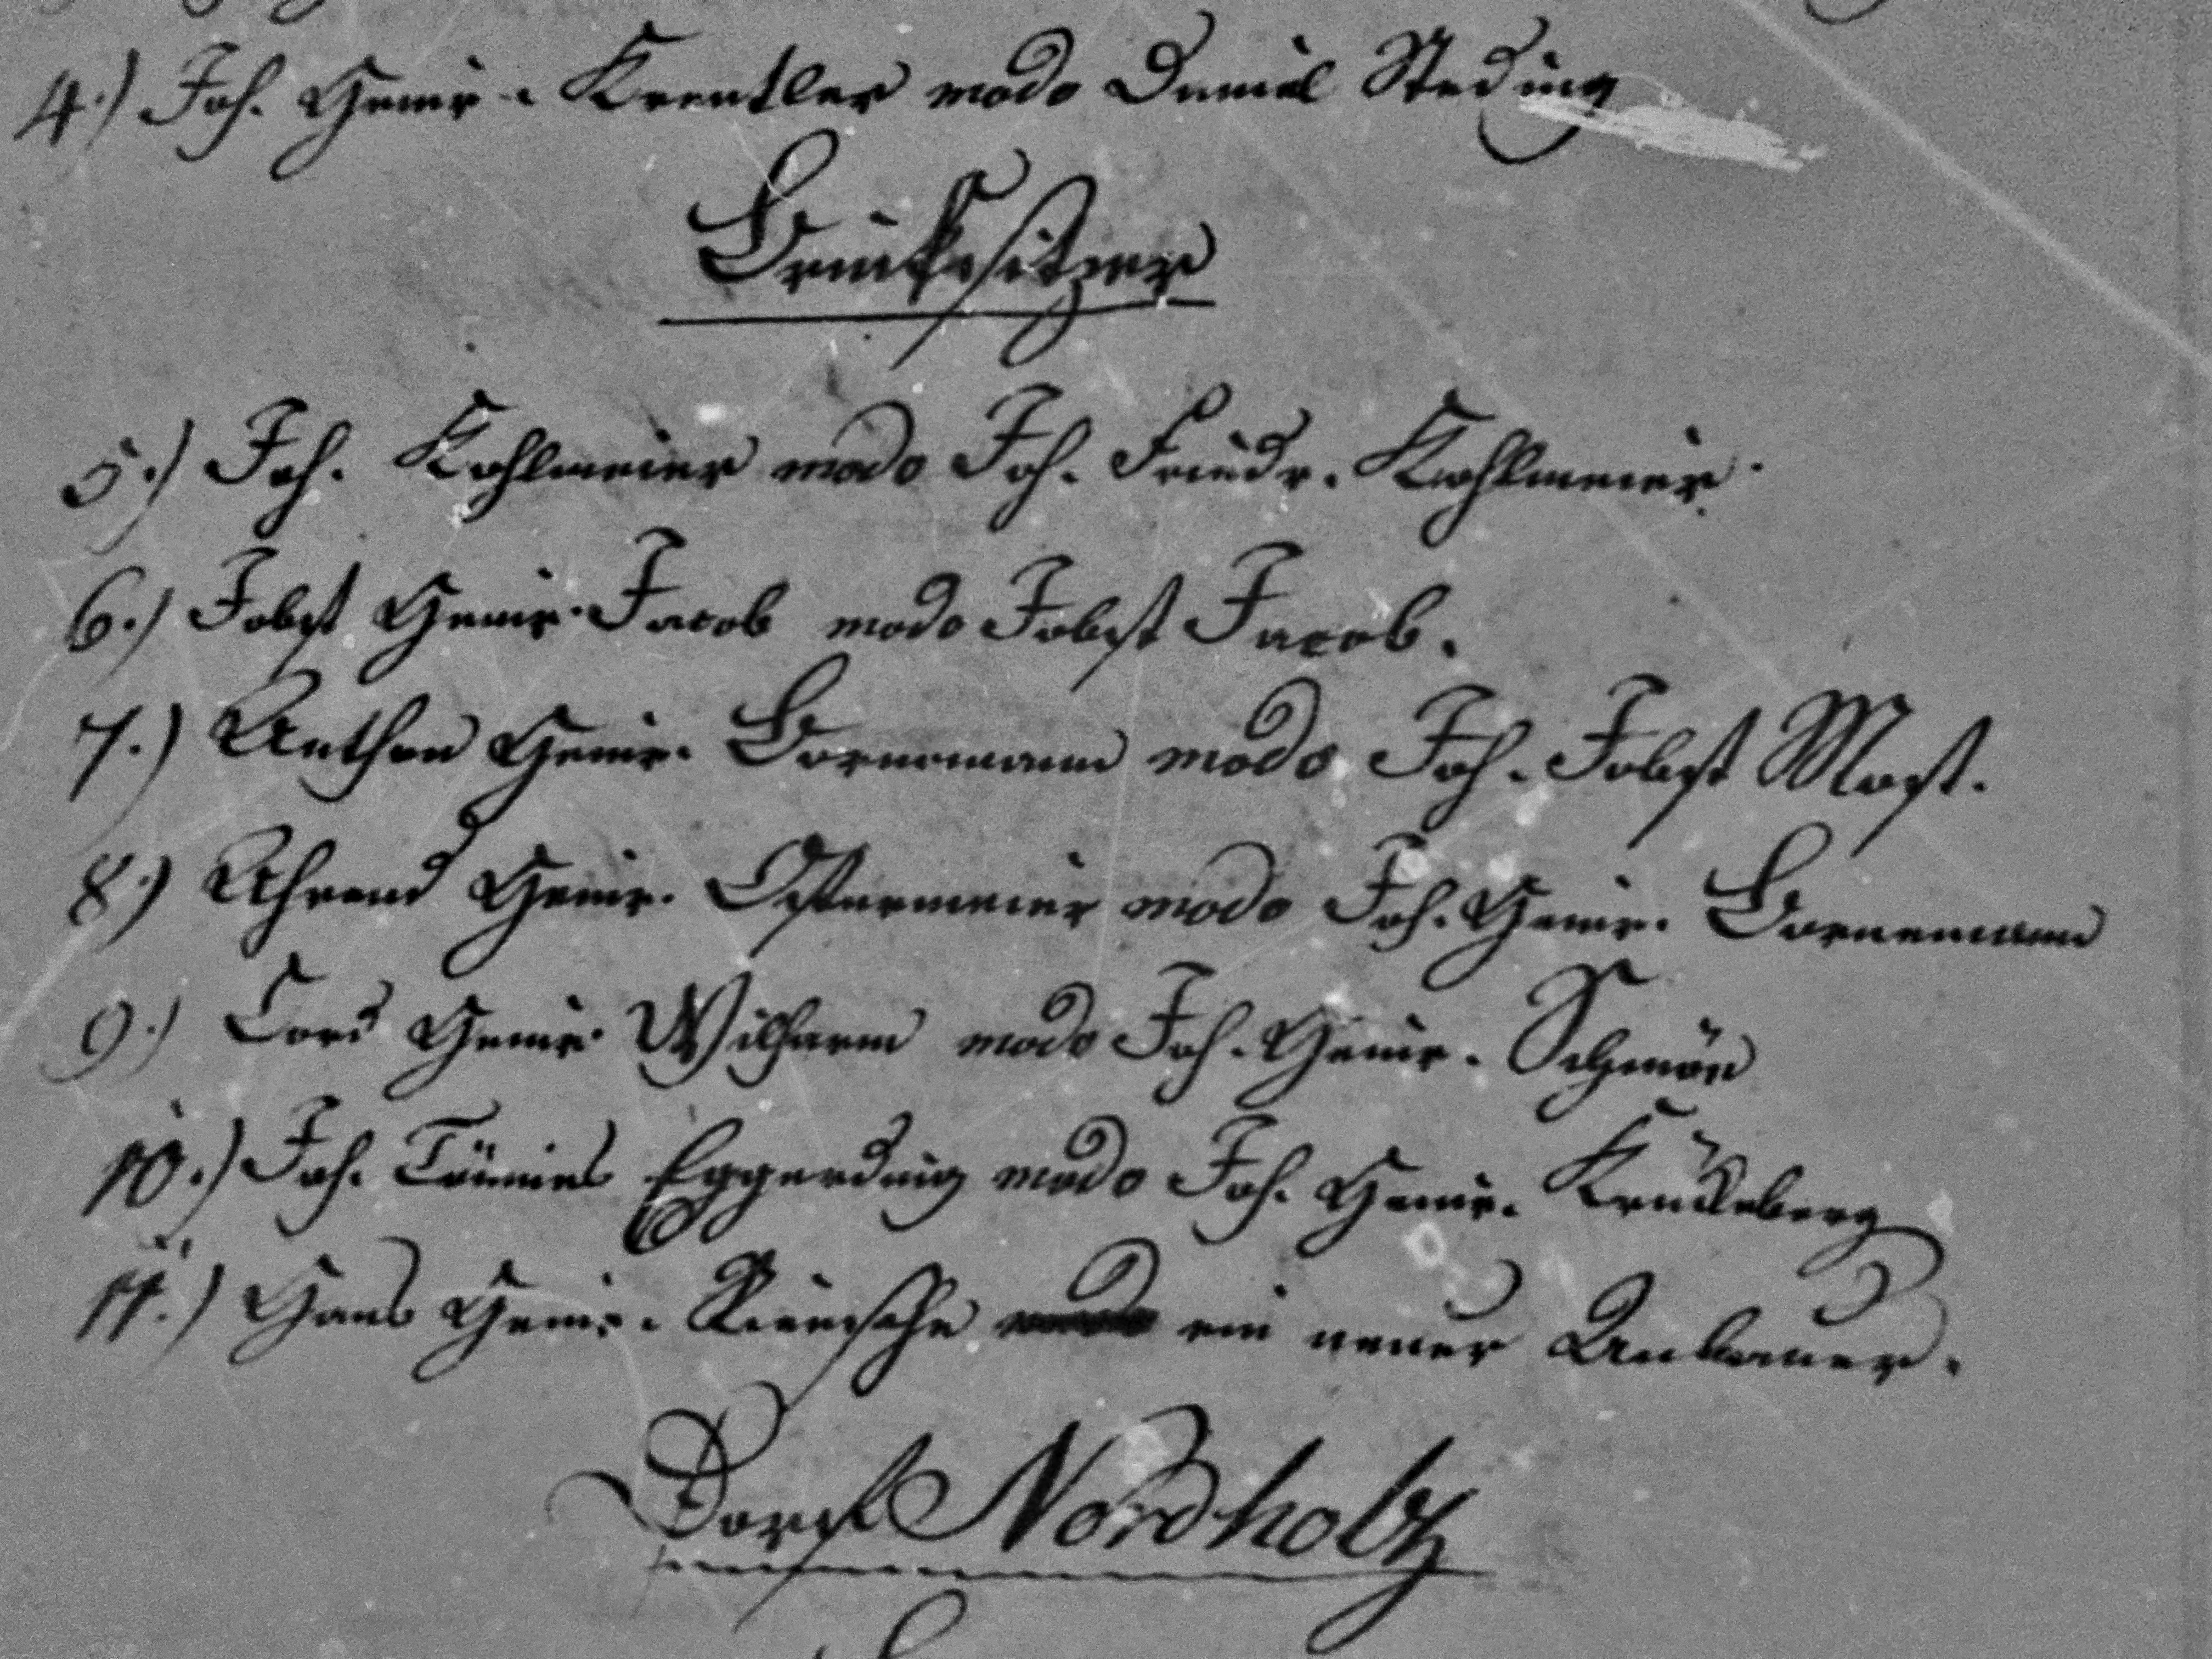 4.) Joh. Henir. Krentler modo Daniel Steding
Brinksitzer
5.) Joh. Kohlmeier modo Joh. Friedr. Kohlmeier.
6.) Jobst Henir. Jacob modo Jobst Jacob.
7.) Anthon Henir. Bornemann modo Joh. Jobst Most.
8.) Ahrend Henir. Ostermeier modo Joh. Henir. Bornemann
9.) Cord Henir. Wilharm modo Joh. Henir.
10.) Joh. Tönnies Eggerding modo Joh. Henir. Krückeberg
11.) Hans Henir. ein neuer Anbauer.
Dorf Nordholtz